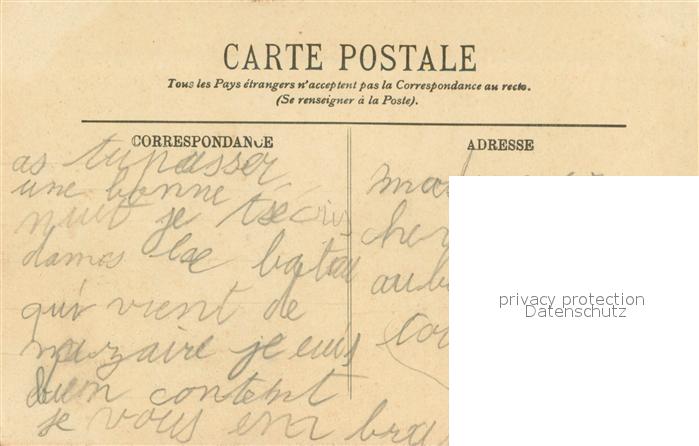 CARTE POSTALE
Tous les Pays étrangers n'acceptent pas la Correspondance au recto.
(Se renseigner à la Poste).
CORRESPONDANCE
ADRESSE
as tu passer
une bonne
nuit je técris
dames le batau
qui vient de
je suis
bien content
je vous em
cher
privacy protection
Datenschutz